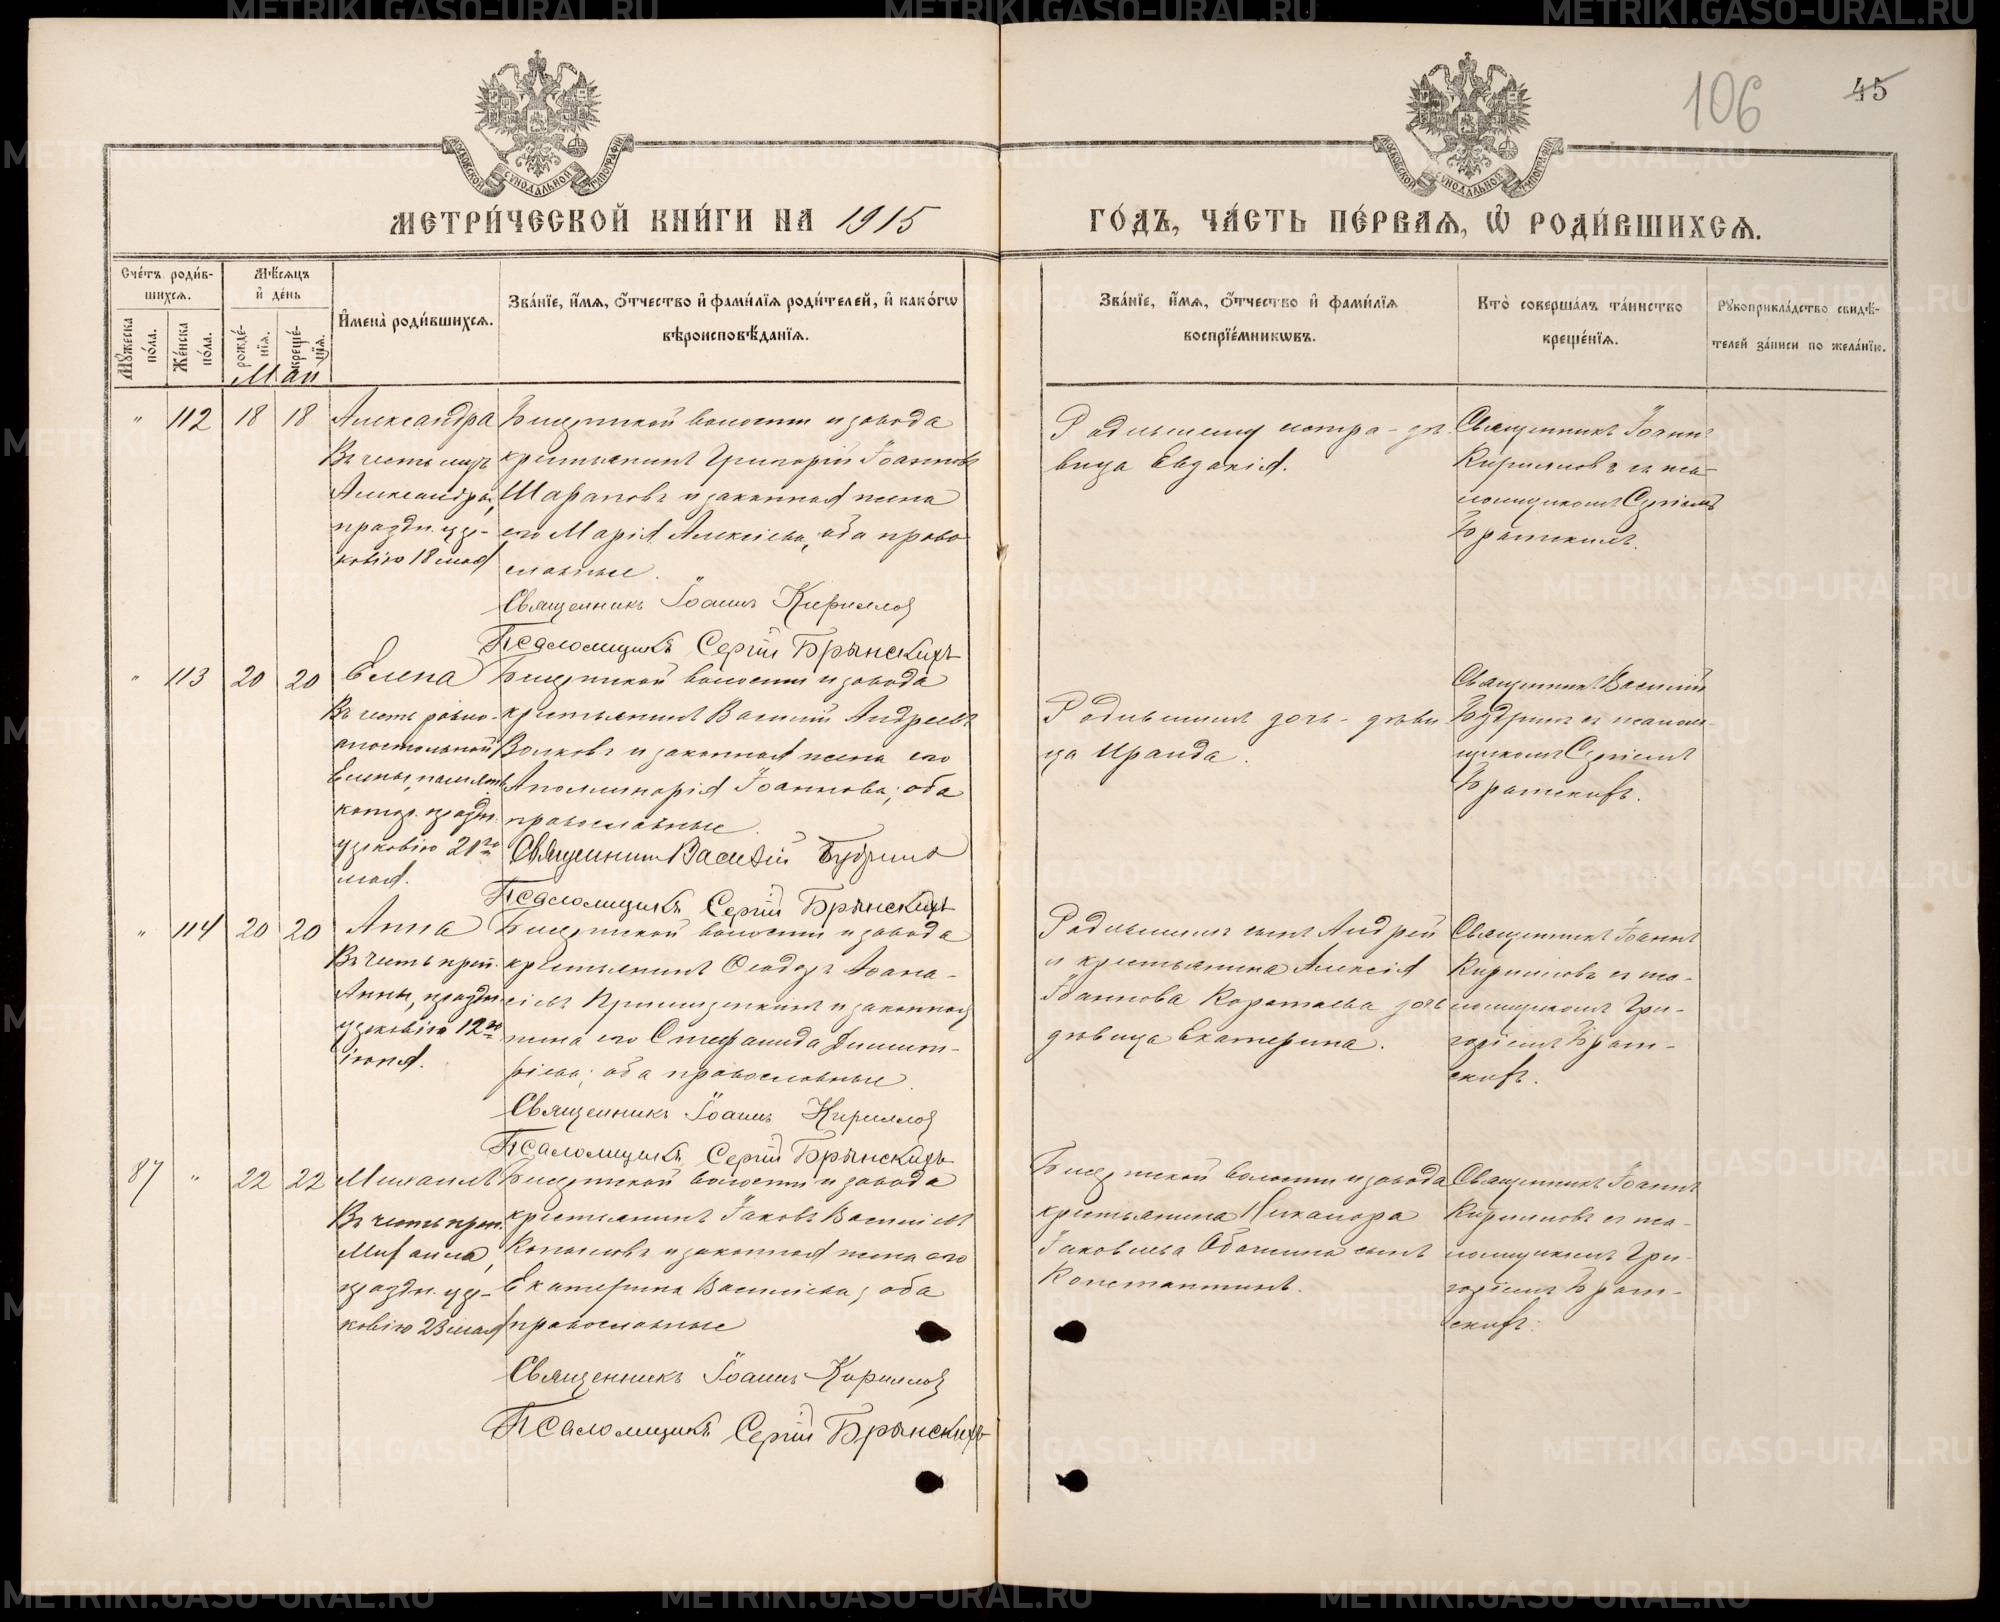 106
45
МОСКОВСКОЙ СѴНОДАЛЬНОЙ ТИПОГРАФІИ
МОСКОВСКОЙ СѴНОДАЛЬНОЙ ТИПОГРАФІИ
МЕТРИ́ЧЕСКОЙ КНИ́ГИ НА 1915
ГО́ДЪ, ЧА́СТЬ ПЕ́РВАѦ, Ѡ҆ РОДИ́ВШИХСѦ.
Сче́тъ роди́в-
шихсѧ.
Мꙋ́жеска по́ла.
Же́нска по́ла.
Мѣ́сѧцъ
и҆ де́нь
рожде́-нїѧ.
креще́-нїѧ.
И҆мена̀ роди́вшихсѧ.
Зва́нїе, и҆́мѧ, ѻ҆́тчество и҆ фами́лїѧ роди́телей, и҆ како́гѡ
вѣроисповѣ́данїѧ.
Зва́нїе, и҆́мѧ, ѻ҆́тчество и҆ фами́лїѧ
воспрїе́мникѡвъ.
Кто̀ соверша́лъ та́инство
креще́нїѧ.
Рꙋкоприкла́дство свидѣ́-
телей за́писи по жела́нїю.
Май
" 112 18 18 Александра
Въ честь муч.
Александры,
праздн. цер-
ковію 18 мая
Бисертской волости и завода
крестьянинъ Григорій Іоанновъ
Шараповъ и законная жена
его Марія Алексіева, оба право
славные.
Священникъ Іоаннъ Кириллов
Псаломщикъ Сергій Брынскихъ
Родившему сестра - дѣ-
вица Евдокія.
Священникъ Іоаннъ
Кирилловъ съ пса-
ломщикомъ Сергіемъ
" 113 20 20 Елена
Въ честь равно-
апостольной
Елены, память
котор. праздн.
церковію 21го
мая.
Бисертской волости и завода
крестьянинъ Василій Андреевъ
Волковъ и законная жена его
Аполлинарія Іоаннова; оба
православные.
Священник Василий Будрин
Псаломщикъ Сергій Брынскихъ
Родившихъ дочь - дѣви
ца Ираида.
Священникъ Василій
Будринъ съ псалом-
щикомъ Сергіемъ
" 114 20 20 Анна
Въ честь преп.
Анны, праздн.
церковію 12го
іюня.
Бисертской волости и завода
крестьянинъ Ѳеодоръ Аѳана-
сіевъ и законная
жена его Стефанида Димит-
ріева; оба православные.
Священникъ Іоаннъ Кириллов
Псаломщикъ Сергій Брынскихъ
Родившихъ сынъ Андрей
и крестьянина Алексія
Іоаннова Коротаева дочь
дѣвица Екатерина.
Священникъ Іоаннъ
Кирилловъ съ пса-
ломщикомъ Гри-
горіемъ Брын-
скихъ.
87 " 22 22 Михаилъ
Въ честь преп.
Михаила,
праздн. цер-
ковію 23 мая
Бисертской волости и завода
крестьянинъ Іаковъ Василіевъ
Копыловъ и законная жена его
Екатерина Василіева; оба
православные
Священникъ Іоаннъ Кириллов
Псаломщикъ Сергій Брынскихъ
Бисертской волости и завода
крестьянина Никанора
Іаковлева сынъ
Константинъ.
Священникъ Іоаннъ
Кирилловъ съ пса-
ломщикомъ Гри-
горіемъ Брын-
скихъ.
METRIKI.GASO-URAL.RU